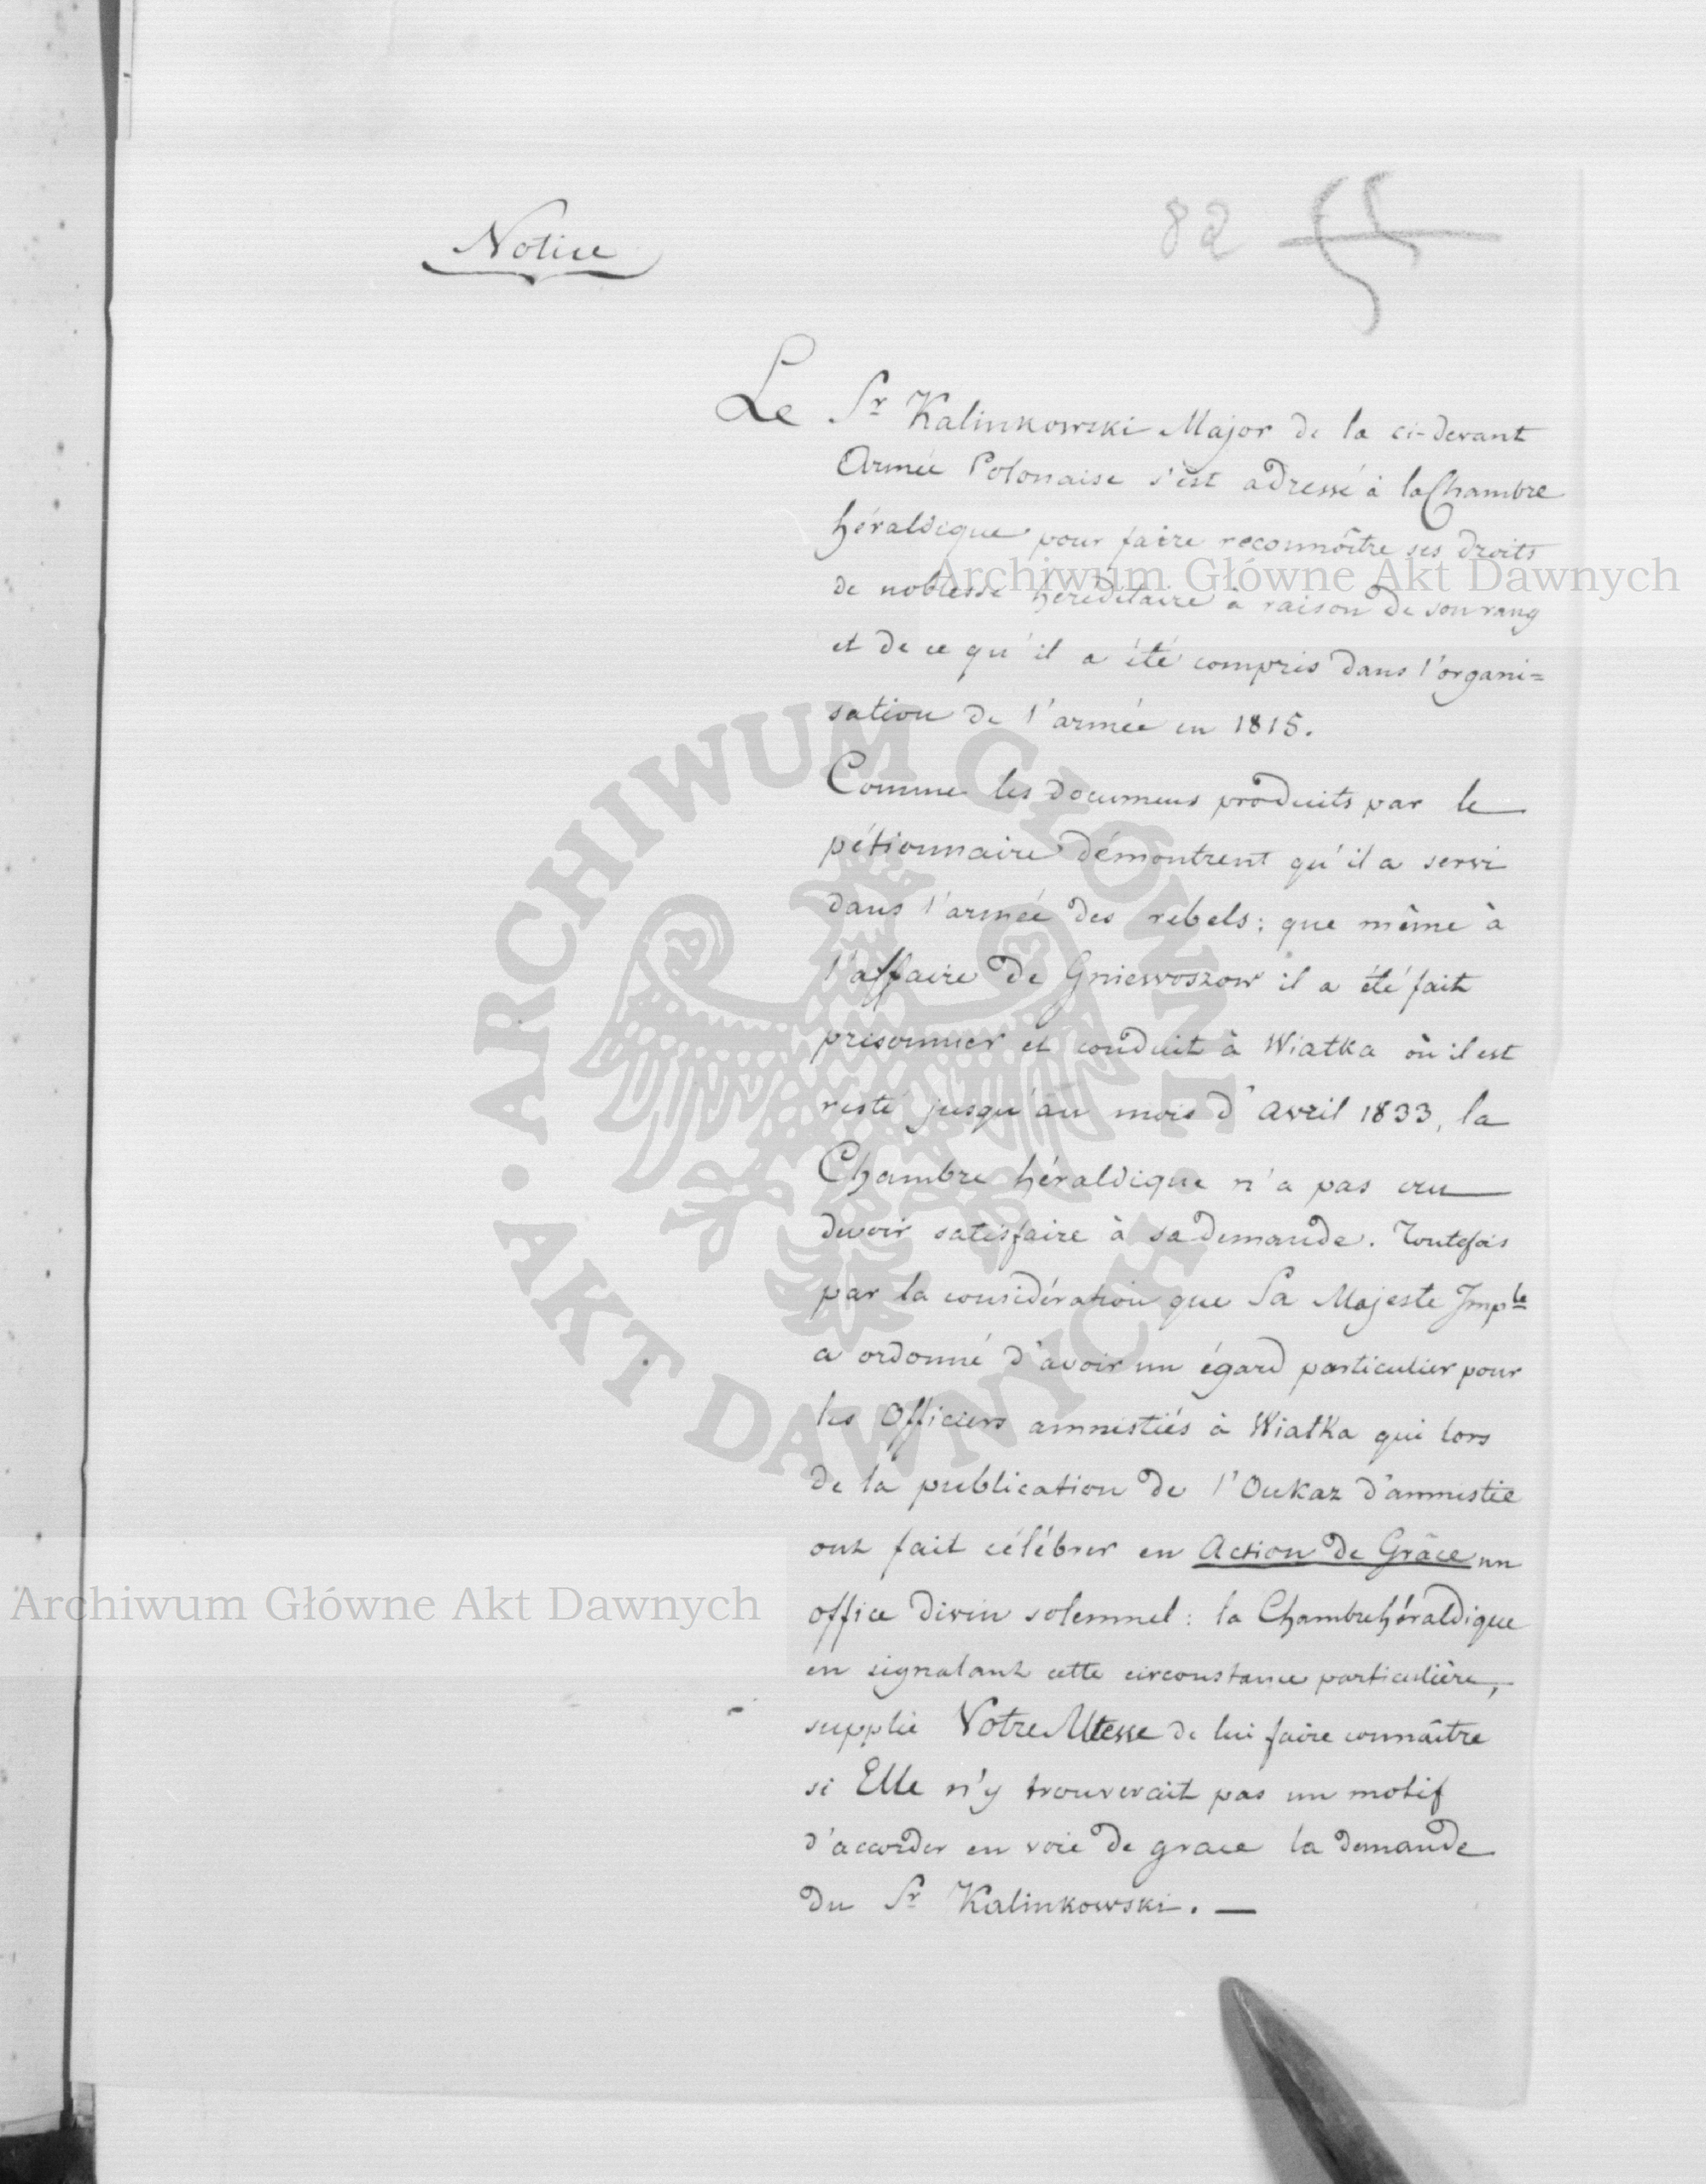 Notice
82
Le Sr Kalinkowski Major de la ci-devant
Armée Polonaise s'est adressé à la Chambre
héraldique pour faire reconnoître ses droits
Archiwum Główne Akt Dawnych
de noblesse héréditaire à raison de son rang
et de ce qu'il a été compris dans l'organi=
sation de l'armée en 1815.
Comme les documens produits par le
pétionnaire démontrent qu'il a servi
dans l'armée des rebels; que même à
l'affaire de Gniewoszow il a été fait
prisonnier et conduit à Wiatka où il est
resté jusqu'au mois d'Avril 1833, la
Chambre héraldique n'a pas cru
devoir satisfaire à sa demande. Toutefois
par la considération que Sa Majeste Imple
a ordonné d'avoir un égard particulier pour
les Officiers amnistiés à Wiatka qui lors
de la publication de l'Oukaz d'amnistie
ont fait célébrer en Action de Grâce un
office divin solemnel: la Chambre héraldique
Archiwum Główne Akt Dawnych
en signalant cette circonstance particulière,
supplie Votre Altesse de lui faire connaître
si Elle n'y trouverait pas un motif
d'accorder en voie de grace la demande
du Sr Kalinkowski. —
ARCHIWUM GŁÓWNE
AKT DAWNYCH